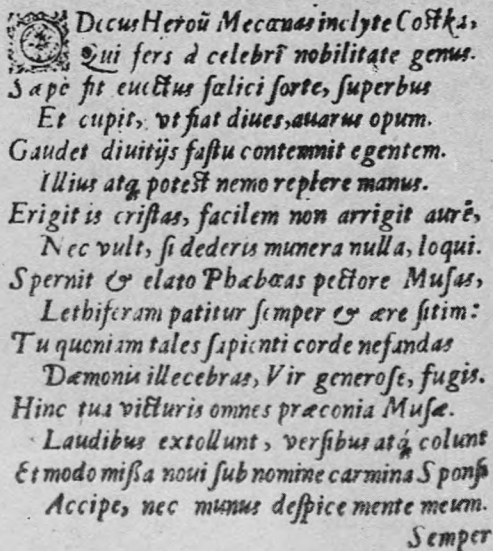 O Decus Heroũ Mecœnas inclyte Costka,
Qui fers à celebrĩ nobilitate genus.
Sæpè fit euectus fœlici sorte, superbus
Et cupit, vt fiat diues, auarus opum.
Gaudet diuitijs fastu contemnit egentem.
Illius atq; potest nemo replere manus.
Erigit is cristas, facilem non arrigit aurẽ,
Nec vult, si dederis munera nulla, loqui.
Spernit & elato Phæbæas pectore Musas,
Lethiferam patitur semper & ære sitim:
Tu quoniam tales sapienti corde nefandas
Dæmonis illecebras, Vir generose, fugis.
Hinc tua victuris omnes præconia Musæ.
Laudibus extollunt, versibus atq; colunt
Et modo missa noui sub nomine carmina Sponsi
Accipe, nec munus despice mente meum.
Semper